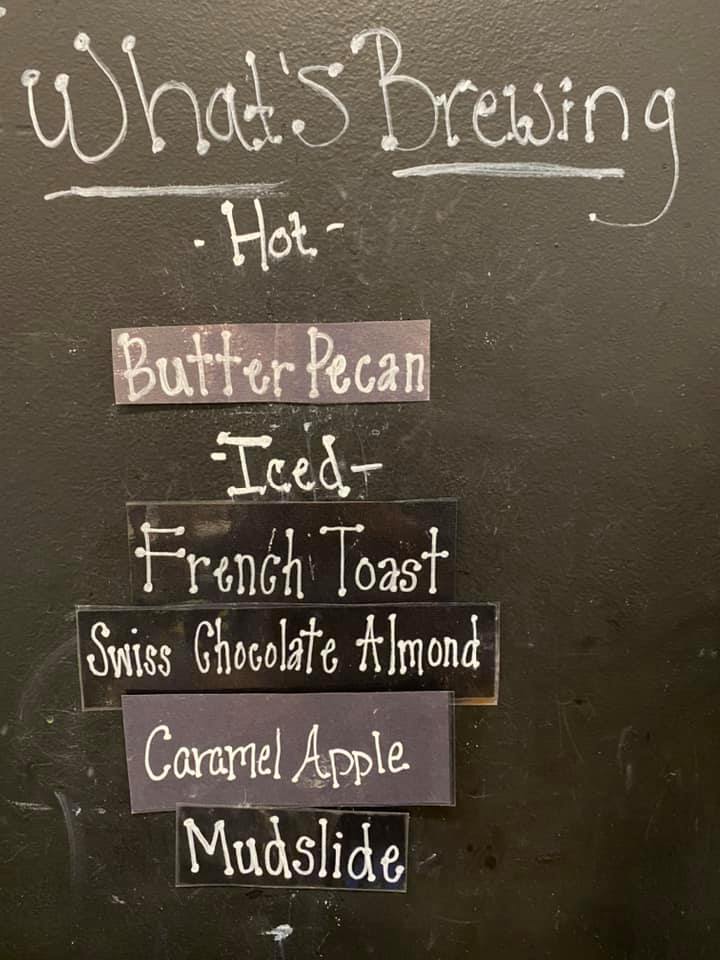 What's Brewing
- Hot -
Butter Pecan
- Iced -
French Toast
Swiss Chocolate Almond
Caramel Apple
Mudslide